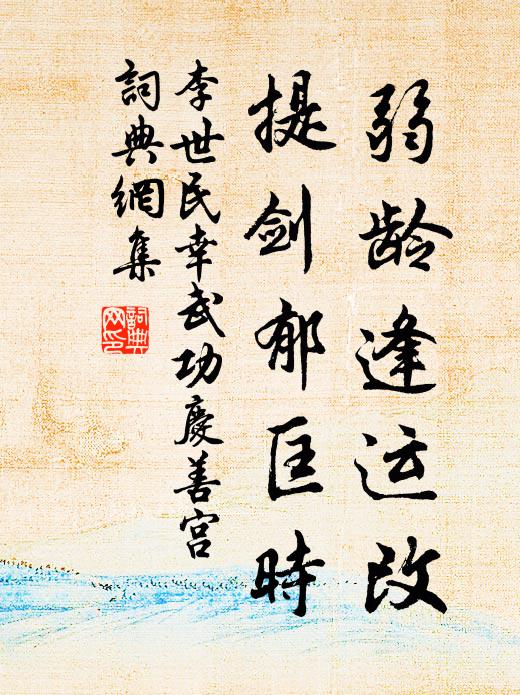 弱龄逢运改
提剑郁匡時
李世民幸武功慶善宫
詞典網集
詞典网印